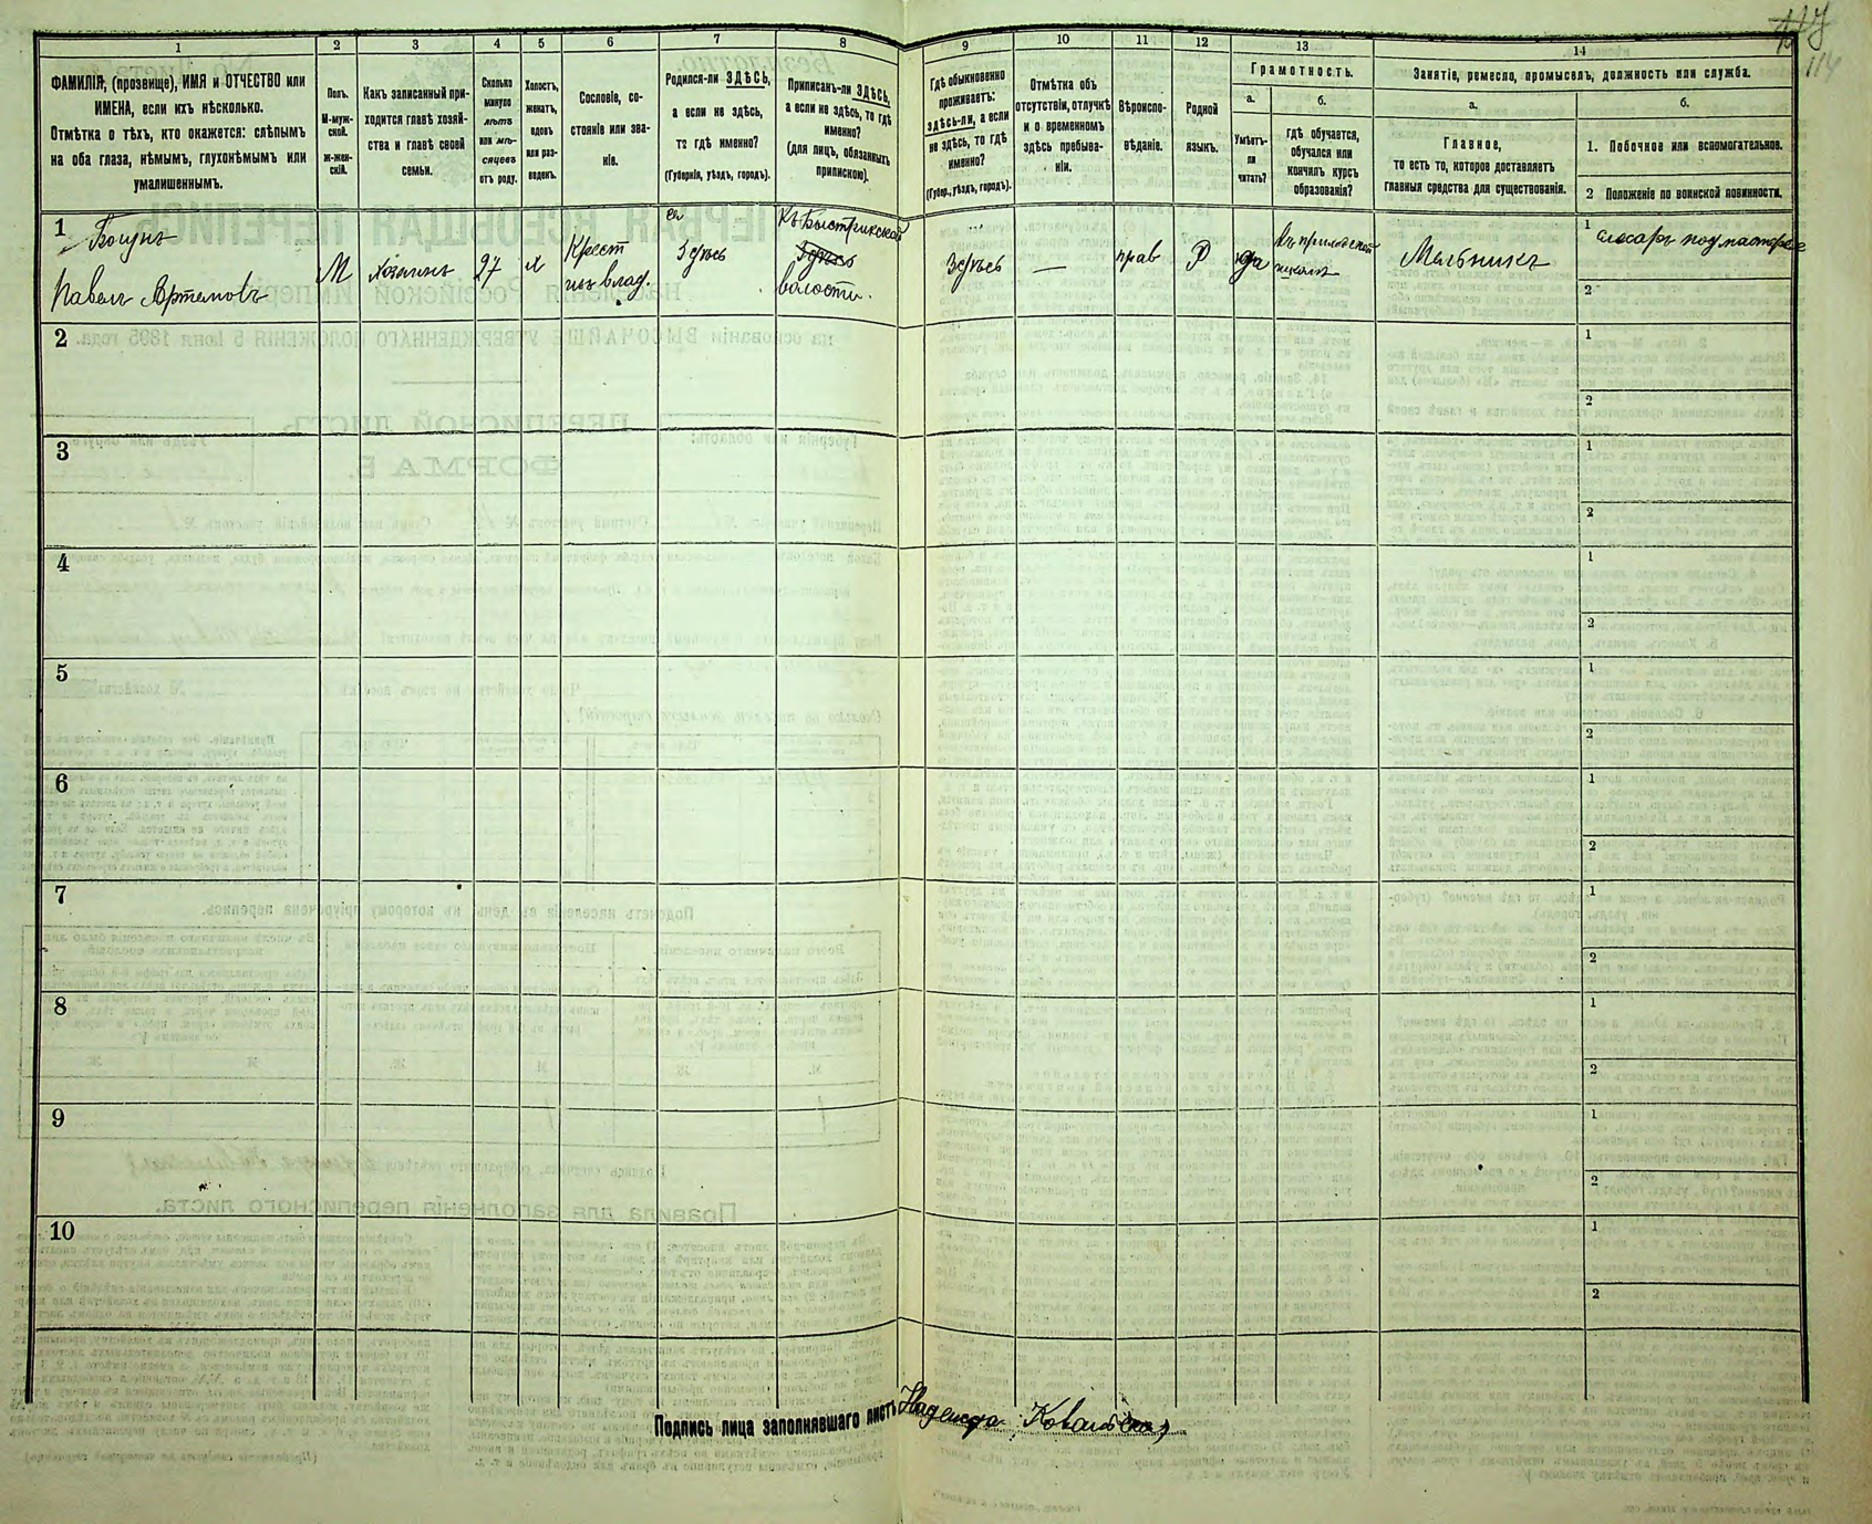 117
114
1
2
3
4
5
6
7
8
9
10
11
12
13
14
ФАМИЛІЯ, (прозвище), ИМЯ и ОТЧЕСТВО или
ИМЕНА, если ихъ нѣсколько.
Отмѣтка о тѣхъ, кто окажется: слѣпымъ
на оба глаза, нѣмымъ, глухонѣмымъ или
умалишеннымъ.
Полъ.
М-муж-
ской.
ж-жен-
скій.
Какъ записанный при-
ходится главѣ хозяй-
ства и главѣ своей
семьи.
Сколько
минуло
лѣтъ
или мѣ-
сяцевъ
отъ роду.
Холостъ,
женатъ,
вдовъ
или раз-
веденъ.
Сословіе, со-
стояніе или зва-
ніе.
Родился-ли ЗДѢСЬ,
а если не здѣсь,
то гдѣ именно?
(Губернія, уѣздъ, городъ).
Приписанъ-ли ЗДѢСЬ,
а если не здѣсь, то гдѣ
именно?
(для лицъ, обязанныхъ
припискою).
Гдѣ обыкновенно
проживаетъ:
здѣсь-ли, а если
не здѣсь, то гдѣ
именно?
(Губер., уѣздъ, городъ).
Отмѣтка объ
отсутствіи, отлучкѣ
и о временномъ
здѣсь пребыва-
ніи.
Вѣроиспо-
вѣданіе.
Родной
языкъ.
Грамотность.
а.
б.
Умѣетъ-
ли
читать?
гдѣ обучается,
обучался или
кончилъ курсъ
образованія?
Занятіе, ремесло, промыселъ, должность или служба.
а.
б.
Главное,
то есть то, которое доставляетъ
главныя средства для существованія.
1. Побочное или вспомогательное.
2 Положеніе по воинской повинности.
1
Павелъ Артемовъ
М
хозяинъ
27
х
Крест
изъ влад.
Здѣсь
Къ Быстрикской
Здѣсь
волости.
Здѣсь
—
прав
Р
да
въ приходской
школѣ
Мельникъ
1
слесарь
2
2
1
2
3
1
2
4
1
2
5
1
2
6
1
2
7
1
2
8
1
2
9
1
2
10
1
2
Подпись лица заполнявшаго листъ Надежда